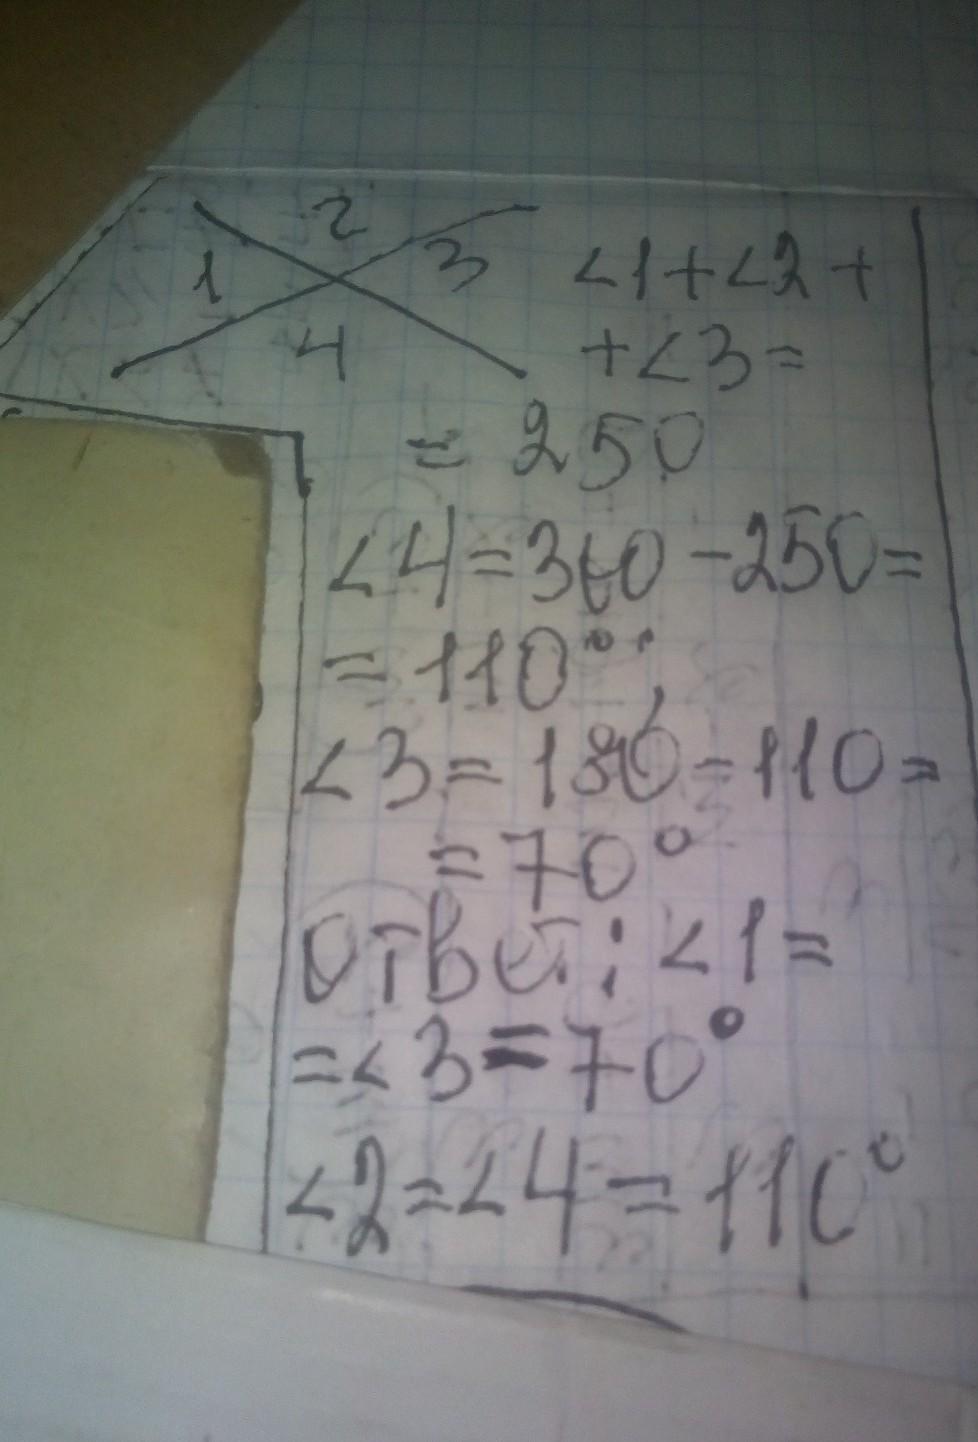 2
1
3
4
<1+<2+
+<3=
= 250
<4=360-250=
=110°;
<3=180-110=
=70°
Ответ: <1=
=<3=70°
<2=<4=110°